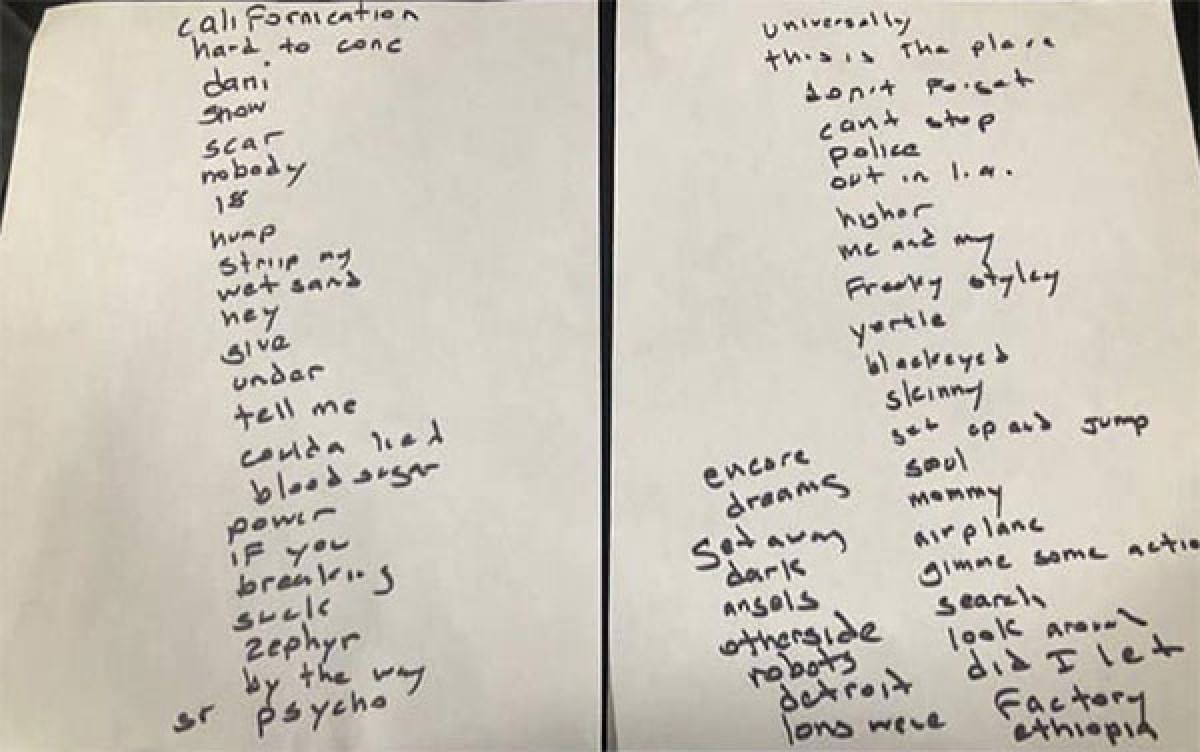 californication
hard to conc
dani
snow
scar
nobody
18
hump
striip my
wet sand
hey
give
under
tell me
coulda lied
blood sugar
power
if you
breaking
suck
zephyr
by the way
sr psycho
universally
this is the place
don't forget
cant stop
police
out in l.a.
higher
me and my
Freaky styley
yertle
blackeyed
skinny
get up and jump
soul
mommy
airplane
gimme some actio
search
look around
did I let
factory
ethiopia
encore
dreams
get away
dark
angels
otherside
robots
detroit
long wave